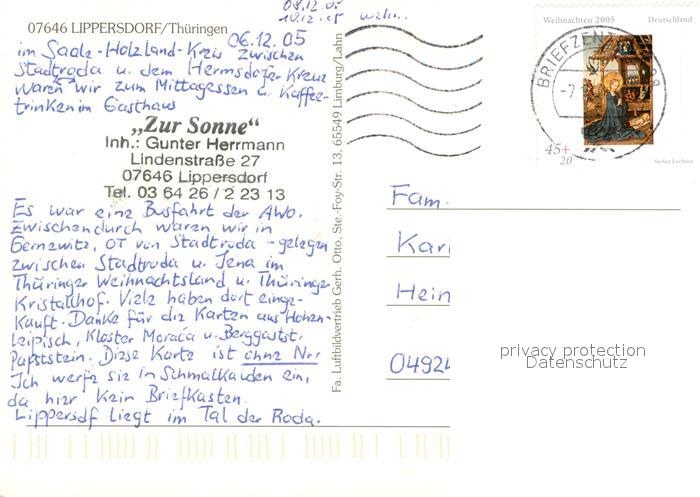 08.12.05
10.12.05
07646 LIPPERSDORF/Thüringen
06.12.05
im Saale-Holzland-Kreis zwischen
Stadtroda u. dem Hermsdorfer Kreuz
waren wir zum Mittagessen u. Kaffee-
trinken im Gasthaus
„Zur Sonne“
Inh.: Gunter Herrmann
Lindenstraße 27
07646 Lippersdorf
Tel. 03 64 26 / 2 23 13
Es war eine Busfahrt der AWO.
Zwischendurch waren wir in
Gernewitz, OT von Stadtroda - gelegen
zwischen Stadtroda u. Jena im
Thüringer Weihnachtsland u. Thüringer
Kristallhof. Viele haben dort einge-
kauft. Danke für die Karten aus Hohen-
leipisch, Kloster Morača u. Berggastst.
Papststein. Diese Karte ist ohne Nr.
Ich werfe sie in Schmalkalden ein,
da hier kein Briefkasten.
Lippersdf liegt im Tal der Roda.
Fa. Luftbildvertrieb Gerh. Otto, Ste.-Foy-Str. 13, 65549 Limburg/Lahn
Weihnachten 2005
Deutschland
BRIEFZEN
45+
20
Stefan Lochner
Fam.
Karl
Hein
04924
privacy protection
Datenschutz